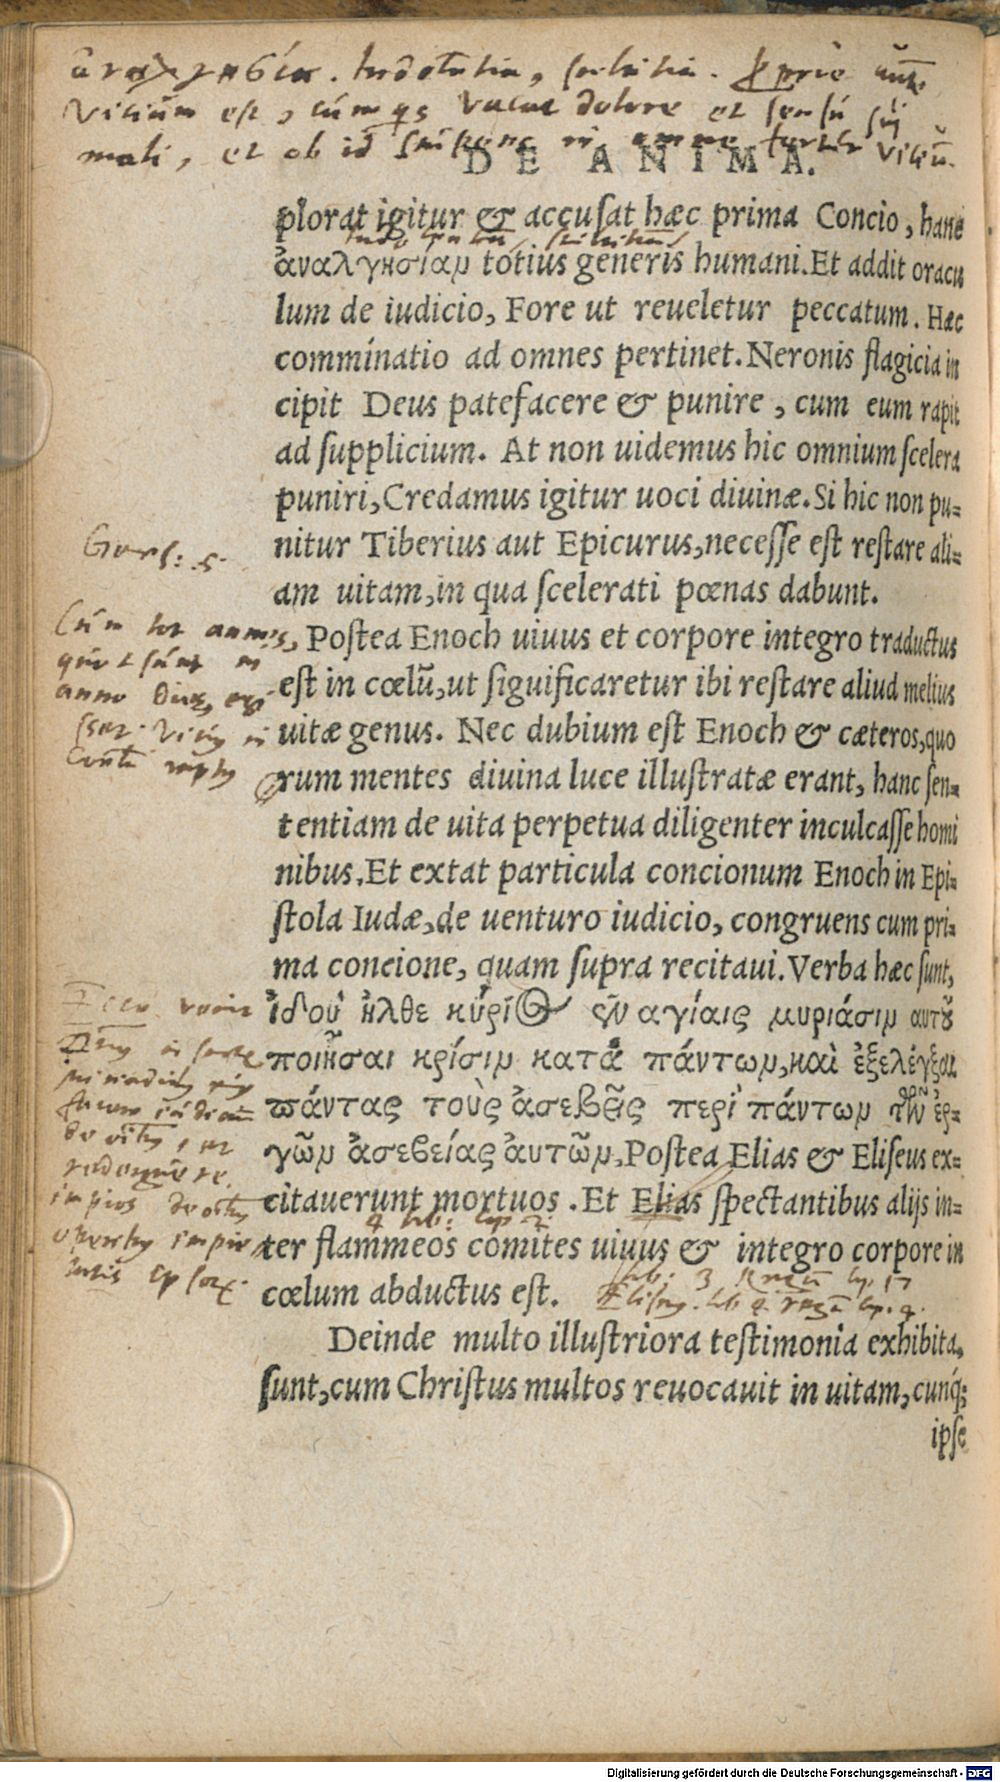 ἀναλγησία. Indolentia, . proprie
Vitium est, cum quis vacat dolore et sensu sui
mali, et ob id in omne fertur vitiu.
DE ANIMA.
plorat igitur & accusat hæc prima Concio, hanc
ἀναλγησίαν totius generis humani. Et addit oracu
lum de iudicio, Fore ut reueletur peccatum. Hæc
comminatio ad omnes pertinet. Neronis flagicia in
cipit Deus patefacere & punire, cum eum rapit
ad supplicium. At non uidemus hic omnium scelera
puniri, Credamus igitur uoci diuinæ. Si hic non pu=
nitur Tiberius aut Epicurus, necesse est restare ali=
am uitam, in qua scelerati pœnas dabunt.
Postea Enoch uiuus et corpore integro traductus
est in cœlū, ut siguificaretur ibi restare aliud melius
uitæ genus. Nec dubium est Enoch & cæteros, quo
rum mentes diuina luce illustratæ erant, hanc sen=
tentiam de uita perpetua diligenter inculcasse homi
nibus. Et extat particula concionum Enoch in Epi=
stola Iudæ, de uenturo iudicio, congruens cum pri=
ma concione, quam supra recitaui. Verba hæc sunt,
ἰδοὺ ἦλθε κύριος ἐν ἁγίαις μυριάσιν αυτοῦ
ποιῆσαι κρίσιν κατὰ πάντων, καὶ ἐξελέγξαι
πάντας τοὺς ἀσεβεῖς περὶ πάντων τῶν ἐρ=
γῶν ἀσεβείας ἀυτῶν. Postea Elias & Eliseus ex=
citauerunt mortuos. Et Elias spectantibus alijs in=
ter flammeos comites uiuus & integro corpore in
cœlum abductus est.
lib: 3 Regū cap. 17
Eliseus. lib 4. regū cap. 4.
Deinde multo illustriora testimonia exhibita
sunt, cum Christus multos reuocauit in uitam, cunq;
ipse
Gene: 5.
Cum tot annis,
quot sunt in
anno dies,
Ecce venit
Dns in
impios de
Digitalisierung gefördert durch die Deutsche Forschungsgemeinschaft - DFG